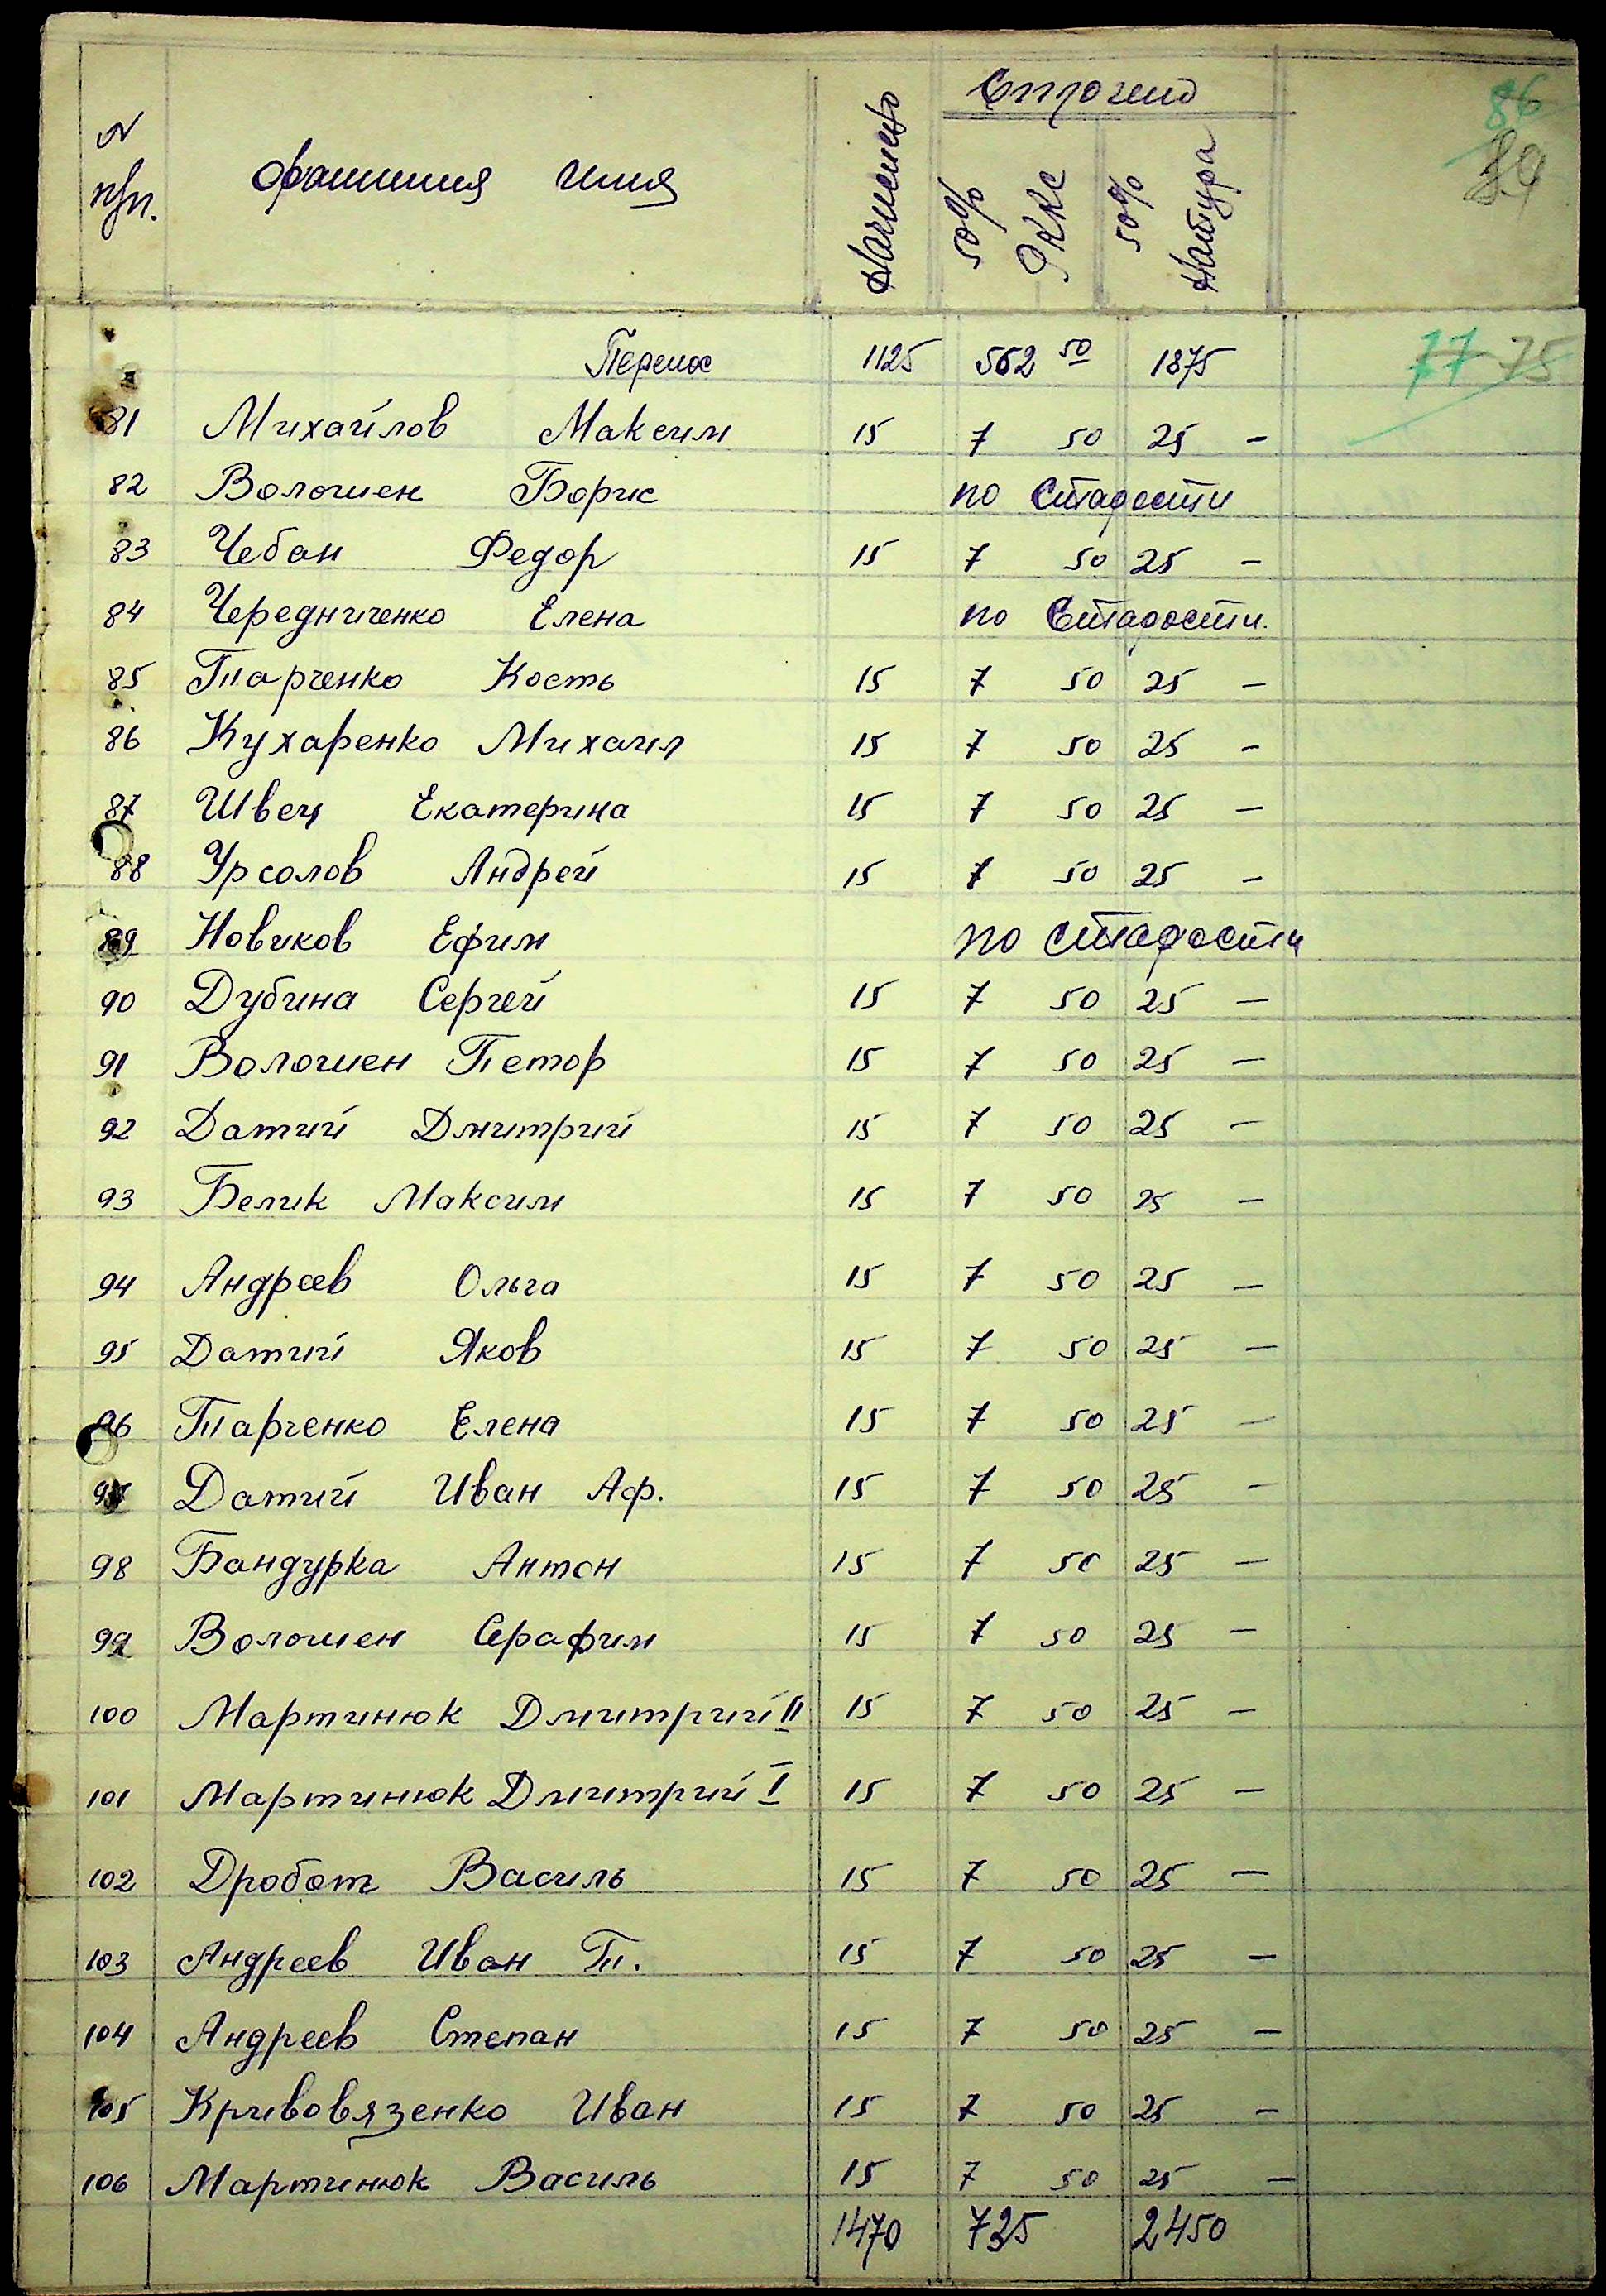 Сплочено
86
N п/п. фамилия имя Начислено 50% РККС 50% Натура
Перенос 1125 562 50 1875 77 75
81 Михайлов Максим 15 7 50 25 -
82 Волошен Борис по старости
83 Чебан Федор 15 7 50 25 -
84 Чередниченко Елена по старости.
85 Парченко Кость 15 7 50 25 -
86 Кухаренко Михаил 15 7 50 25 -
87 Швец Екатерина 15 7 50 25 -
88 Урсолов Андрей 15 7 50 25 -
89 Новиков Ефим по старости
90 Дубина Сергей 15 7 50 25 -
91 Волошен Петор 15 7 50 25 -
92 Датий Дмитрий 15 7 50 25 -
93 Белик Максим 15 7 50 25 -
94 Андреев Ольга 15 7 50 25 -
95 Датий Яков 15 7 50 25 -
96 Парченко Елена 15 7 50 25 -
97 Датий Иван Аф. 15 7 50 25 -
98 Бандурка Антон 15 7 50 25 -
99 Волошен Серафим 15 7 50 25 -
100 Мартинюк Дмитрий II 15 7 50 25 -
101 Мартинюк Дмитрий I 15 7 50 25 -
102 Дробот Василь 15 7 50 25 -
103 Андреев Иван П. 15 7 50 25 -
104 Андреев Степан 15 7 50 25 -
105 Кривовязенко Иван 15 7 50 25 -
106 Мартинюк Василь 15 7 50 25 -
1470 735 2450